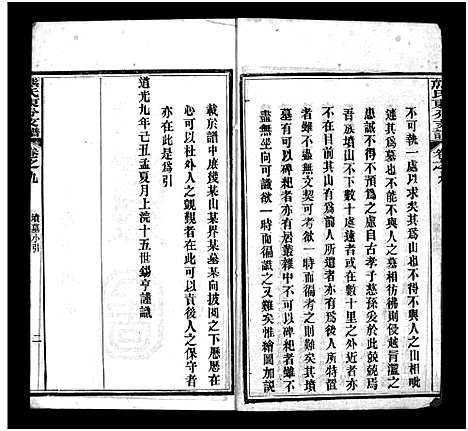 不可執一處以求矣其爲山也不能不與人之山相毗
其爲墓也不能不與人之墓相彷彿則侵越冒混之
患誠不可不爲之慮自古孝子慈孫矣於此兢兢焉
吾族墳山無慮數十處遠者或在數十里之外近者亦
不在目前其山有爲前人所遺者亦有爲後人所增
者雖不蟲無文契可考欲一時而徧考之則難矣其墳
墓有可以碑杷者亦有居叢雜中不可以碑杷者雖不
盡無坐向可識欲一時而徧識之又難矣惟繪圖加說
載於譜中庶幾某山某界某墓某向披圖之下歷歷在
心可以杜外人之覬覦者在此可以責後人之保守者
亦在此是爲引
道光九年己丑孟夏月上浣十五世錫亨謹識
熊氏東分支譜
卷之九
墳墓小引
二